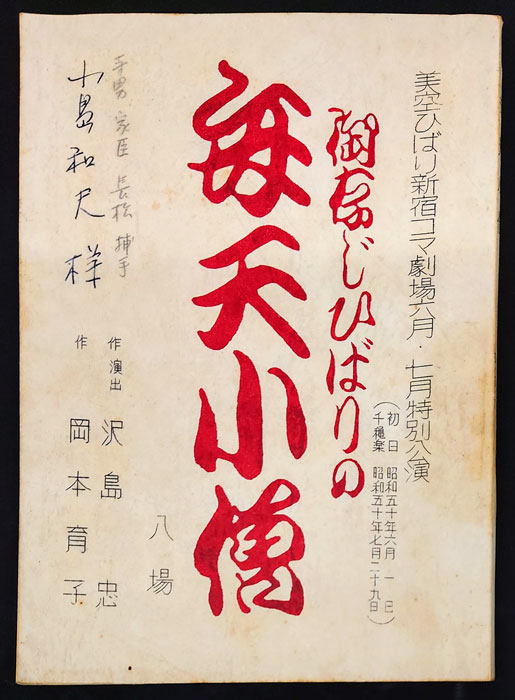 美空ひばり新宿コマ劇場六月・七月特別公演
(初日 昭和五十年六月 一日
千穐楽 昭和五十年七月二十九日)
御存じひばりの
弁天小僧
八場
作演出 沢島 忠
作 岡本育子
寺男 家臣 長松 捕手
小島和夫 様